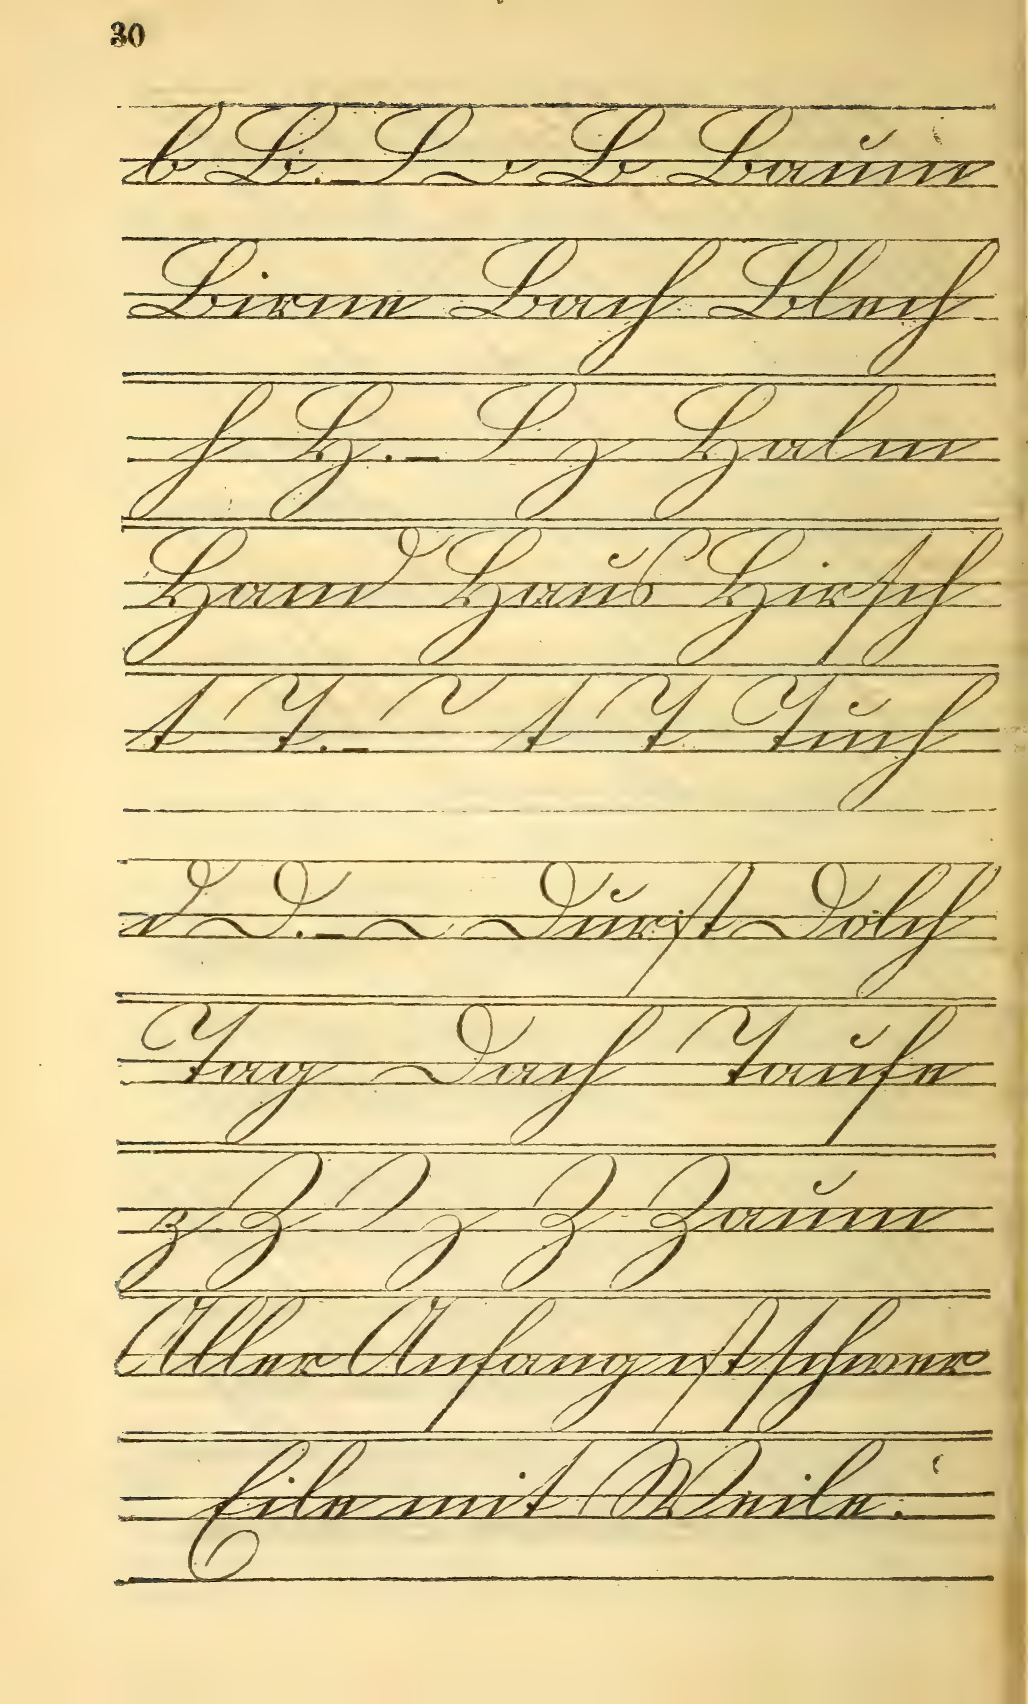 30
b B. B B Baum
Birne Bach Blech
h H. H Halm
Hand Haus Hirsch
t T. t T Tuch
d D. Durst Dolch
Tag Dach Taufe
z Z Z Zaum
Aller Anfang ist schwer
Eile mit Weile.